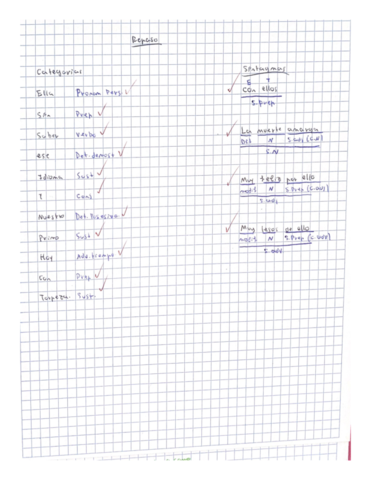 Repaso
Categorías
Ella Pronom Pers.
Sin Prep
Subir Verbo
ese Det demost
Idioma Sust
I Conj
Nuestro Det. Posesivo
Primo Sust
Hoy Adv. tiempo
Con Prep
Torpeza Sust
Sintagmas
E T
Con ellos
S. Prep
La muerte
Det N
S.N
Muy feliz por ello
modif N S. Prep
Muy lejos de ello
modif N S. Prep
S. adv